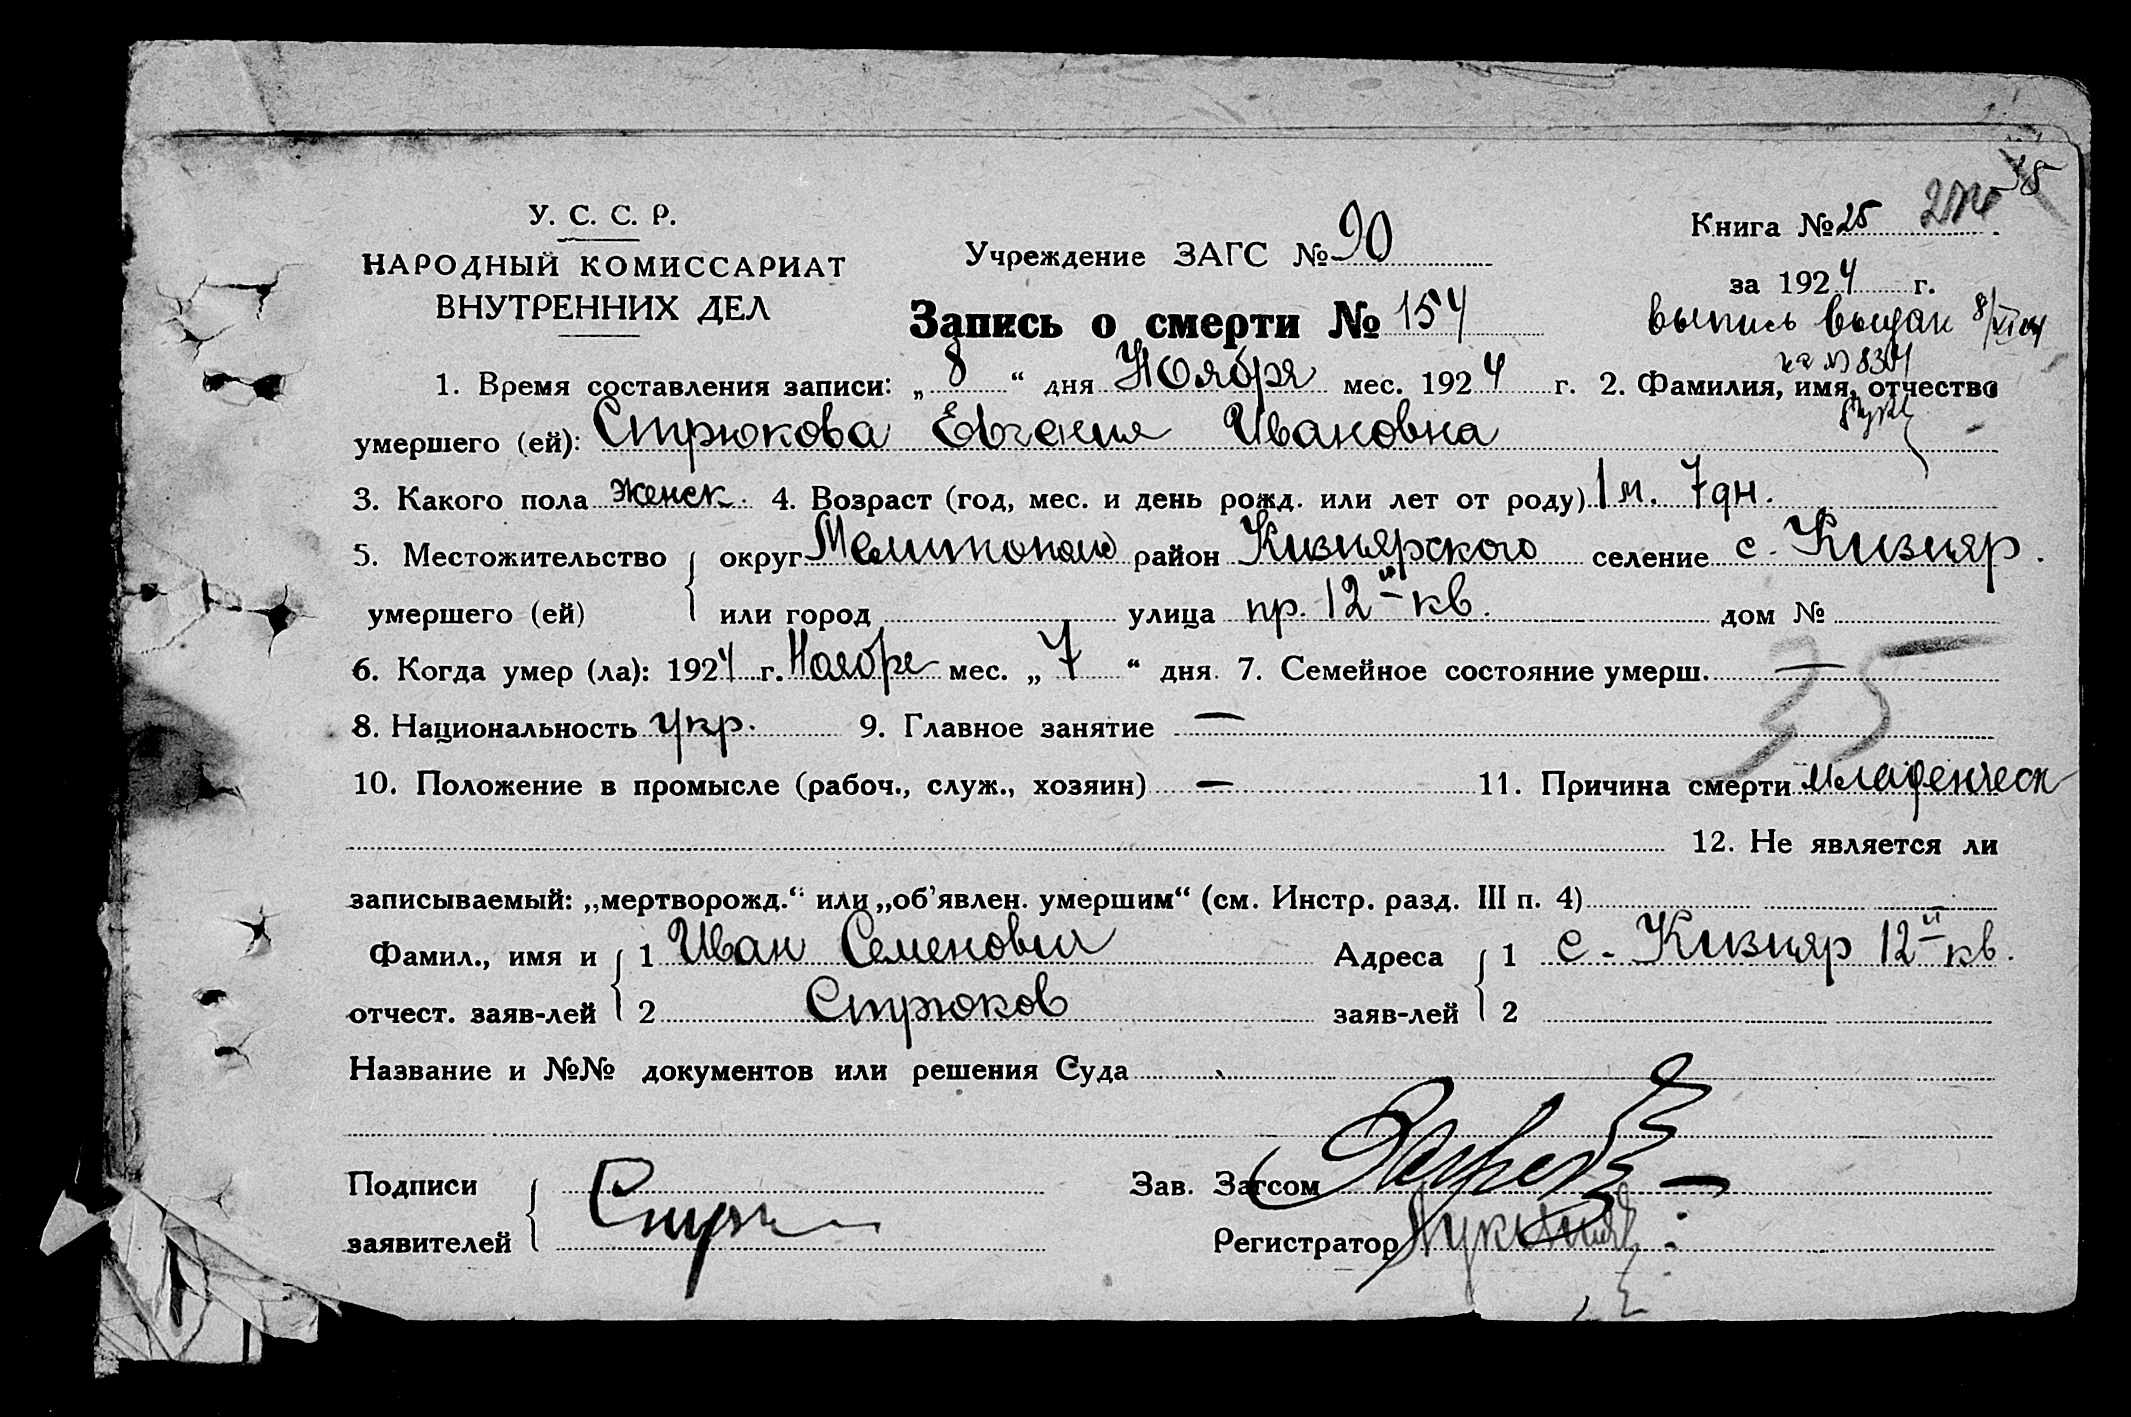 У. С. С. Р.
НАРОДНЫЙ КОМИССАРИАТ
ВНУТРЕННИХ ДЕЛ
Учреждение ЗАГС № 90
Книга № 25
за 1924 г.
Запись о смерти № 154
выпись выдан 8/XI 24
1. Время составления записи: „8“ дня Ноября мес. 1924 г. 2. Фамилия, имя, отчество
умершего (ей): Стрюкова Евгения Ивановна
3. Какого пола женск. 4. Возраст (год, мес. и день рожд. или лет от роду) 1 м. 7 дн.
5. Местожительство округ Мелитополь район Кизиярского селение с. Кизияр.
умершего (ей) или город улица пр. 12й кв. дом №
6. Когда умер (ла): 1924 г. Ноября мес. „7“ дня. 7. Семейное состояние умерш. —
35
8. Национальность укр. 9. Главное занятие —
10. Положение в промысле (рабоч., служ., хозяин) — 11. Причина смерти младенческ
12. Не является ли
записываемый: „мертворожд.“ или „об’явлен. умершим“ (см. Инстр. разд. III п. 4)
Фамил., имя и 1 Иван Семенович Адреса 1 с. Кизияр 12й кв.
отчест. заяв-лей 2 Стрюков заяв-лей 2
Название и №№ документов или решения Суда
Подписи Зав. Загсом
заявителей Регистратор